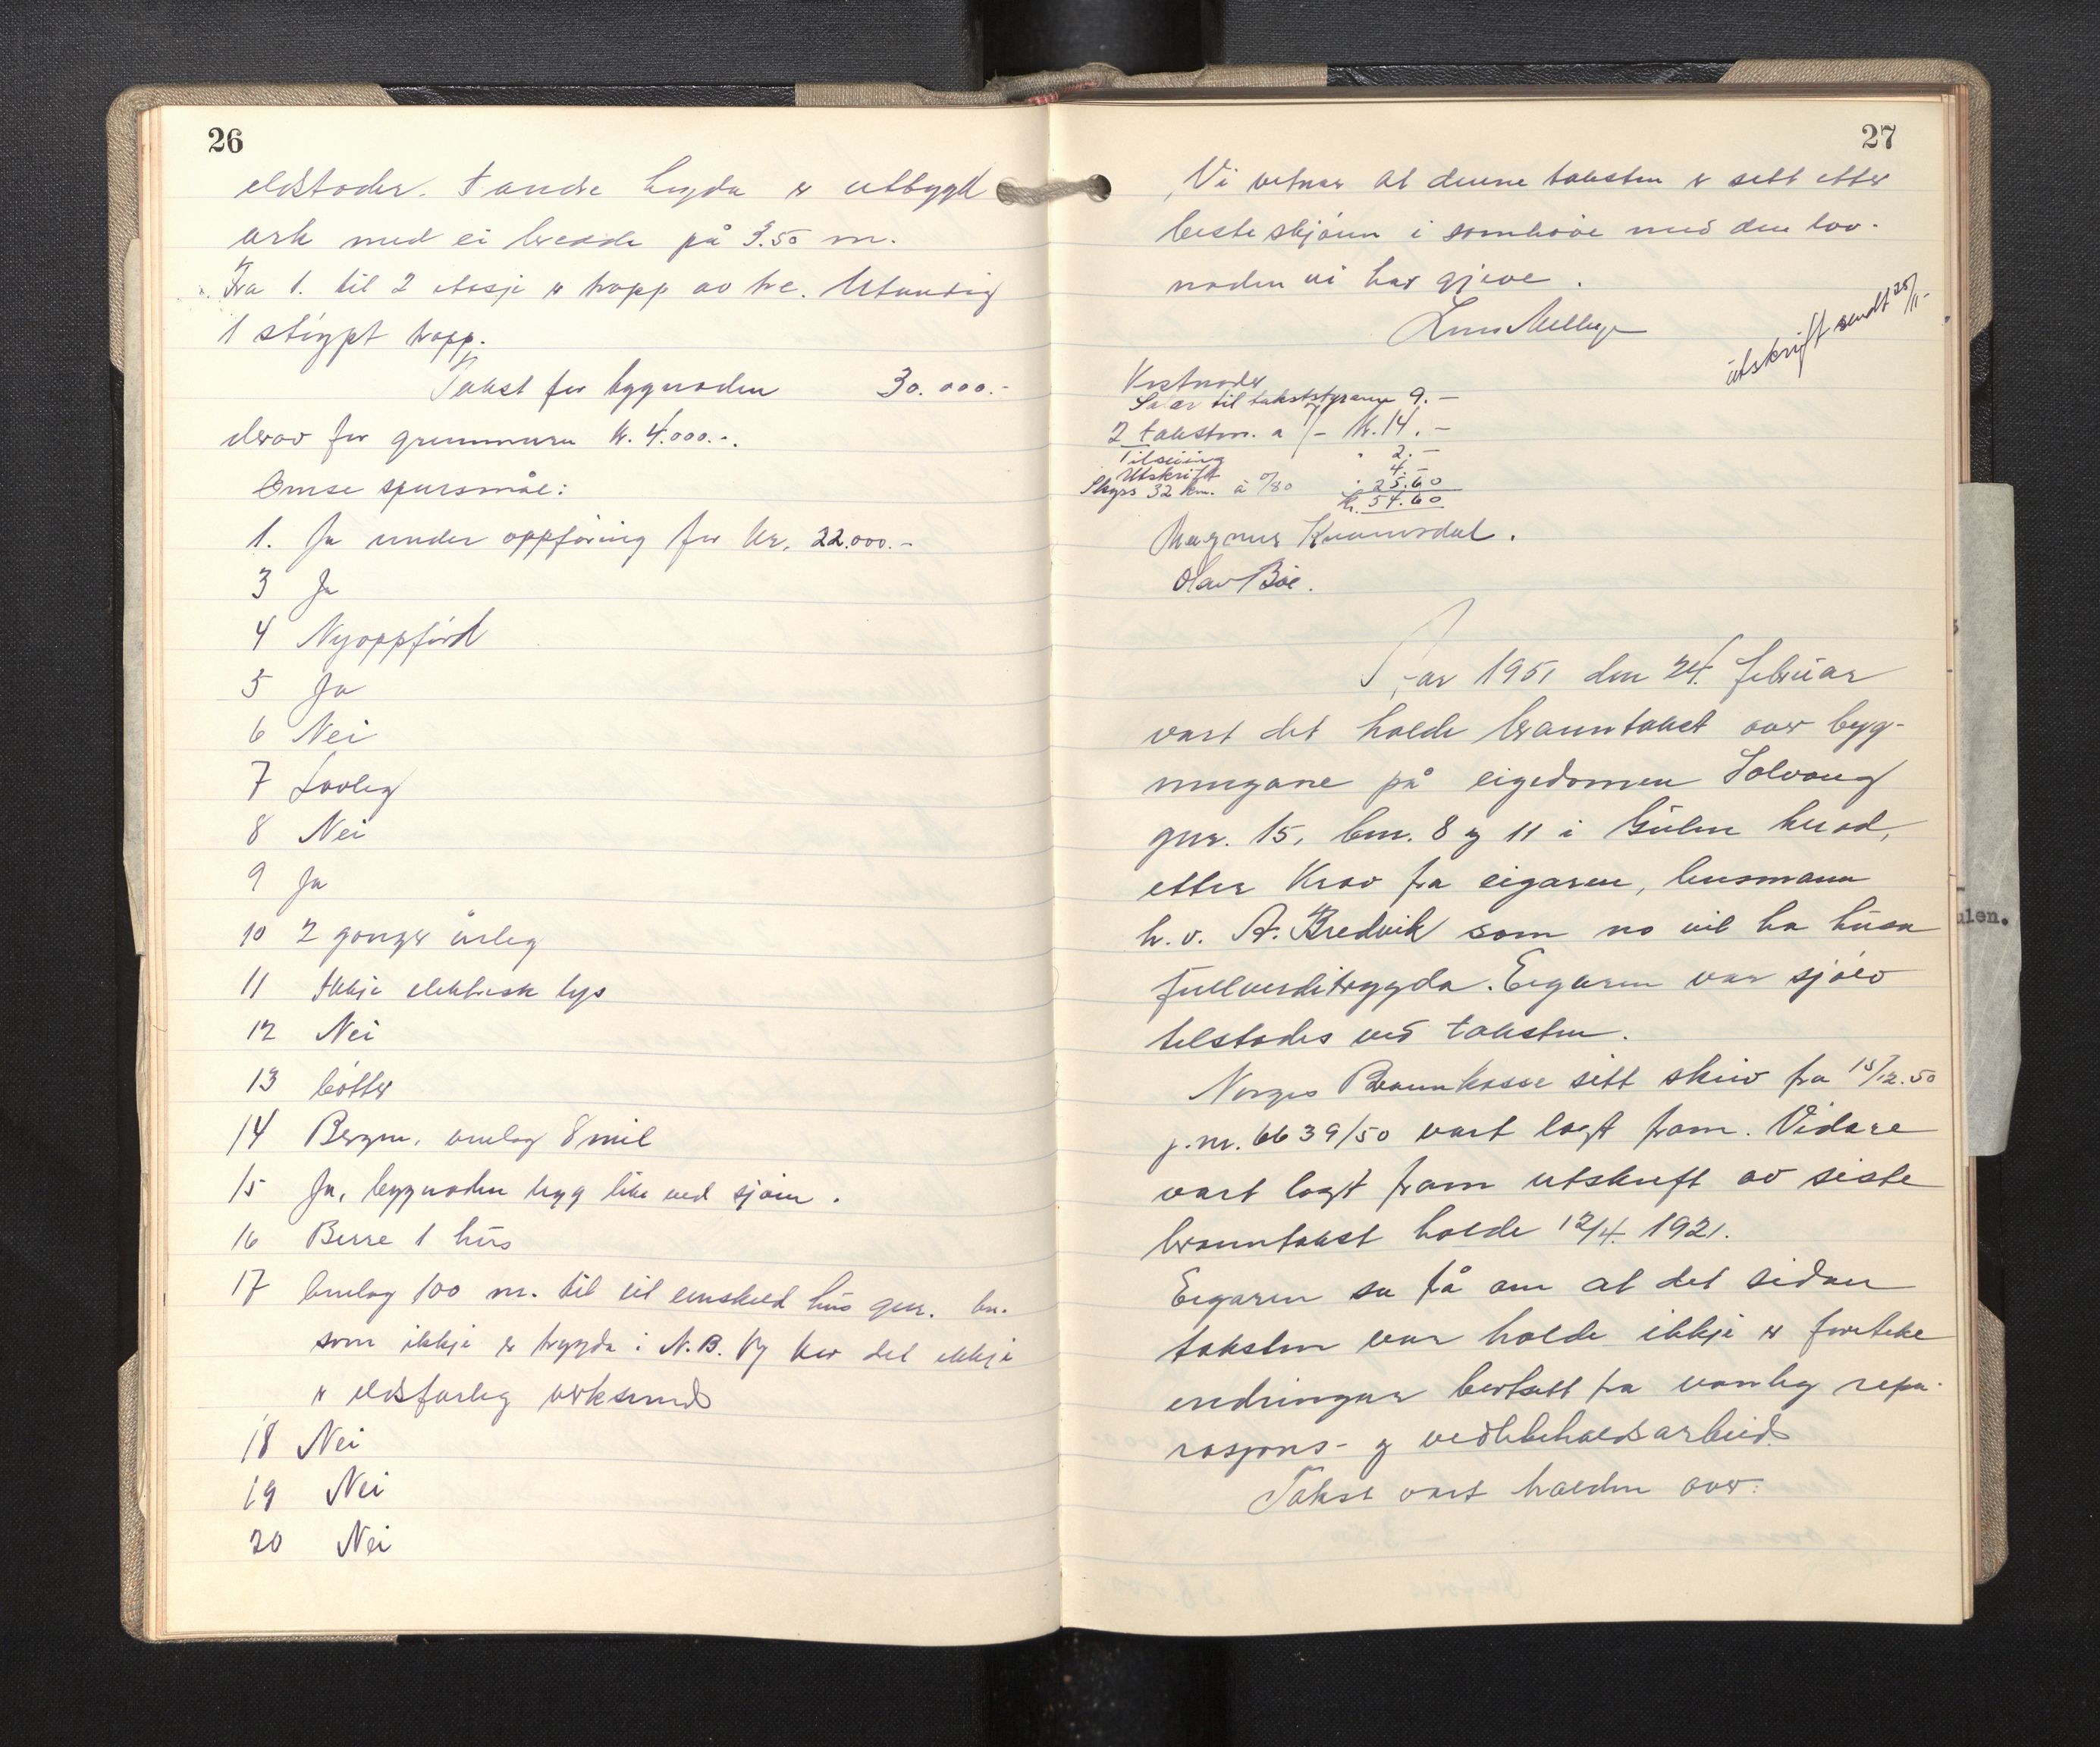 26
eldstader. I andre høgda er utbygd
ark med ei breidde på 3.50 m.
Fra 1. til 2 etasje er trapp av tre. Utvendig
1 støypt trapp.
Takst for bygnaden 30.000.-
derav for grunnmuren kr. 4.000.-.
Ymse spursmål:
1. Ja under oppføring for kr. 22.000.-
3 Ja
4 Nyoppførd
5 Ja
6 Nei
7 Lovleg
8 Nei
9 Ja
10 2 gonger årleg
11 Ikkje elektrisk lys
12 Nei
13 bøtter
14 Bergen, omlag 8 mil
15 Ja, bygnaden ligg like ved sjøen.
16 Berre 1 hus
17 Omlag 100 m. til eit einskild hus gnr. bn.
som ikkje er trygda i N.B. Og kor det ikkje
er eldsfarleg verksemd
18 Nei
19 Nei
20 Nei
27
Vi vitnar at denne taksten er sett etter
beste skjønn i samhøve med den lov-
naden vi har gjeve.
utskrift sendt 25/11-
Kostnader
Salær til takststyraren 9.-
2 takstm. a 7/- kr. 14.-
Tilseiing " 2.-
Utskrift 4.-
Skyss 32 km. à 0/80 " 25.60
kr. 54.60
Magnus Kvamsdal.
Olav Bøe.
År 1951 den 24. februar
vart det halde branntakst over byg-
ningane på eigedomen Solvang
gnr. 15, bnr. 8 og 11 i Gulen herad,
etter krav fra eigaren, lensmann
h.v. A. Bredvik som no vil ha husa
fullverditrygda. Eigaren var sjølv
tilstades ved taksten.
Norges Brannkasse sitt skriv fra 15/12.50
j.nr. 6639/50 vart lagt fram. Vidare
vart lagt fram utskrift av siste
branntakst halde 12/4. 1921.
Eigaren sa få om at det sidan
taksten var halde ikkje er foreteke
endringar bortsett fra vanleg repa-
rasjons- og vedlikehaldsarbeid.
Takst vart halden over:
ulen.